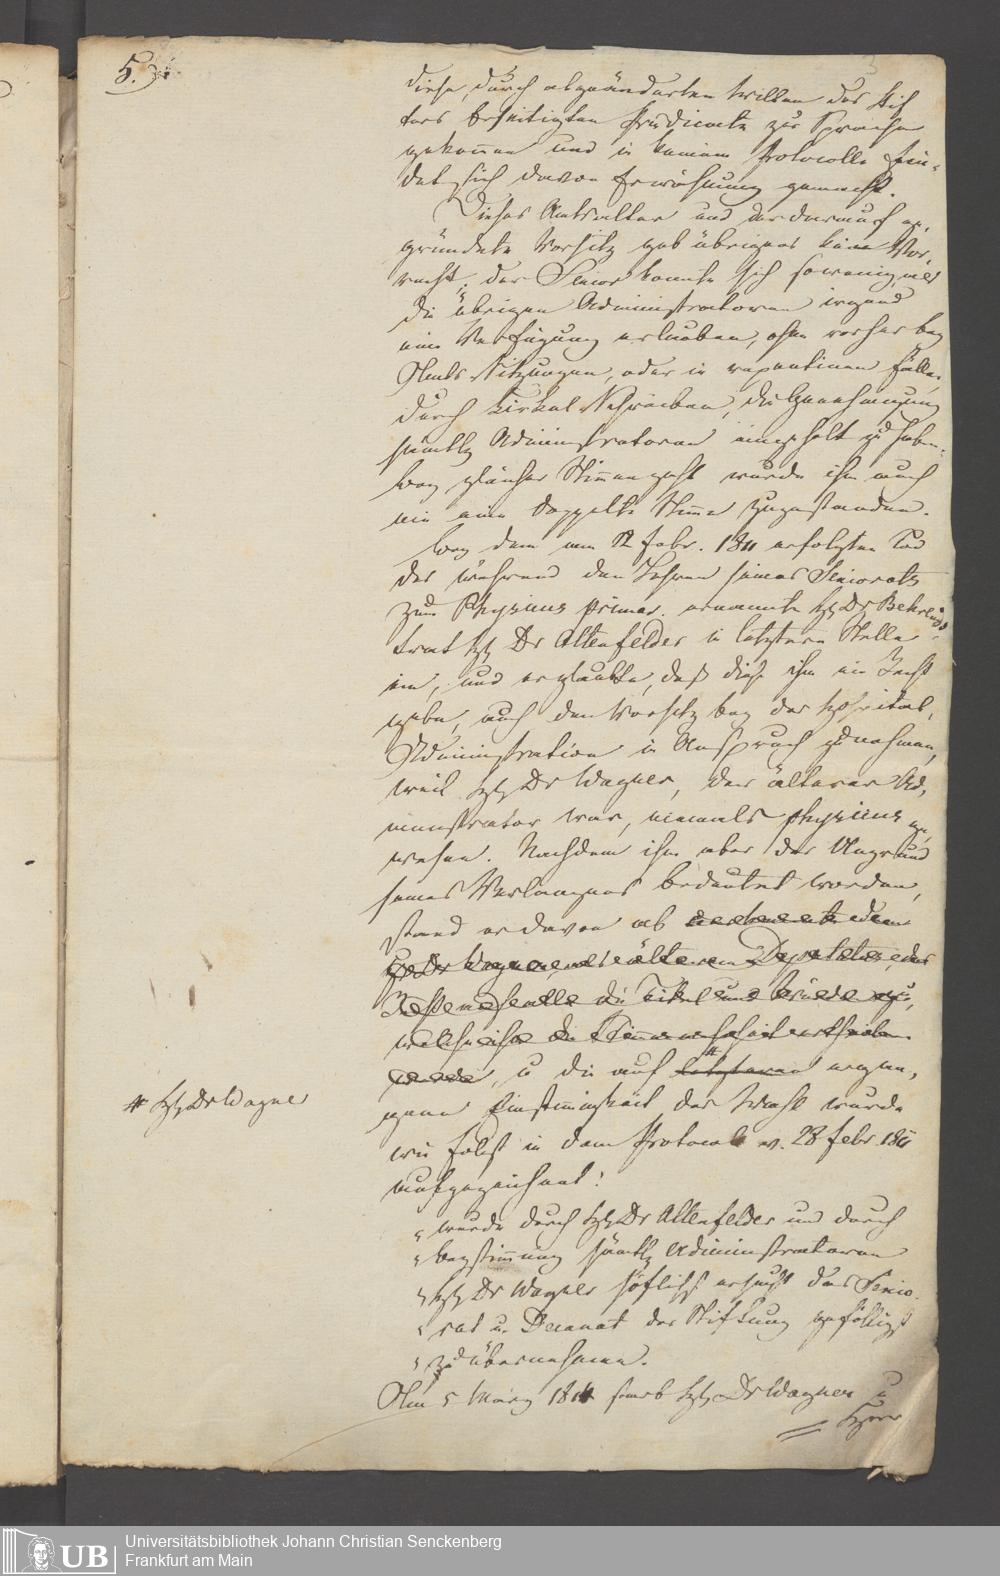 5.
diese, durch abgeänderten Willen des Stif
ters beseitigten Prädicate zur Sprache
gekom̄en und in keinem Protocolle fin-
det sich davon Erwähnung gemacht.
Dieses Amtsalter und der darauf ge,
gründete Vorsitz gab übrigens kein Vor,
recht; der Senior konnte sich sowenig, als
die übrigen Administratoren irgend
eine Verfügung erlauben, ohne vorher bey
Amts-Sitzungen, oder in repentinen Fällen,
durch Zirkul-Schreiben, die Genehmigung
sämtl Administratoren eingeholt zu haben.
bey gleicher Stim̄enzahl wurde ihm auch
nie eine doppelte Stim̄e zugestanden.
bey dem am febr. 1811 erfolgten Tod
des während den Jahren seines Seniorats
zum Physicus primar. ernannte H Dr Behrends
trat H Dr Altenfelder in letztere Stelle
ein, und er glaubte, daß dieß ihm ein Recht
gebe, auch den Vorsitz bey der Hospital,
Administration in Anspruch zu nehmen,
weil H Dr Wagner, der älterer Ad,
ministrator war, niemals Physicus ge,
wesen. Nachdem ihm aber der Ungrund
seines Verlangens bedeutet worden,
stand er davon ab dem
H Dr Wagner, als älterem Deputatus, das
die
die
werde, u die auf letzteren ergan,
# H Dr Wagner
gene Einstim̄igkeit der Wahl wurde
wie folgt in dem Protocoll v. 28 febr 1811
aufgezeichnet:
„ wurde durch H Dr Altenfelder und durch
„ beystim̄ung sämtl Administratoren
„ H Dr Wagner höflichst ersucht das Senio-
„ rat u. Decanat der Stiftung gefälligst
„ zu übernehmen.
Am 5 März 1814 starb H Dr Wagner u
Herr
Universitätsbibliothek Johann Christian Senckenberg
Frankfurt am Main
UB